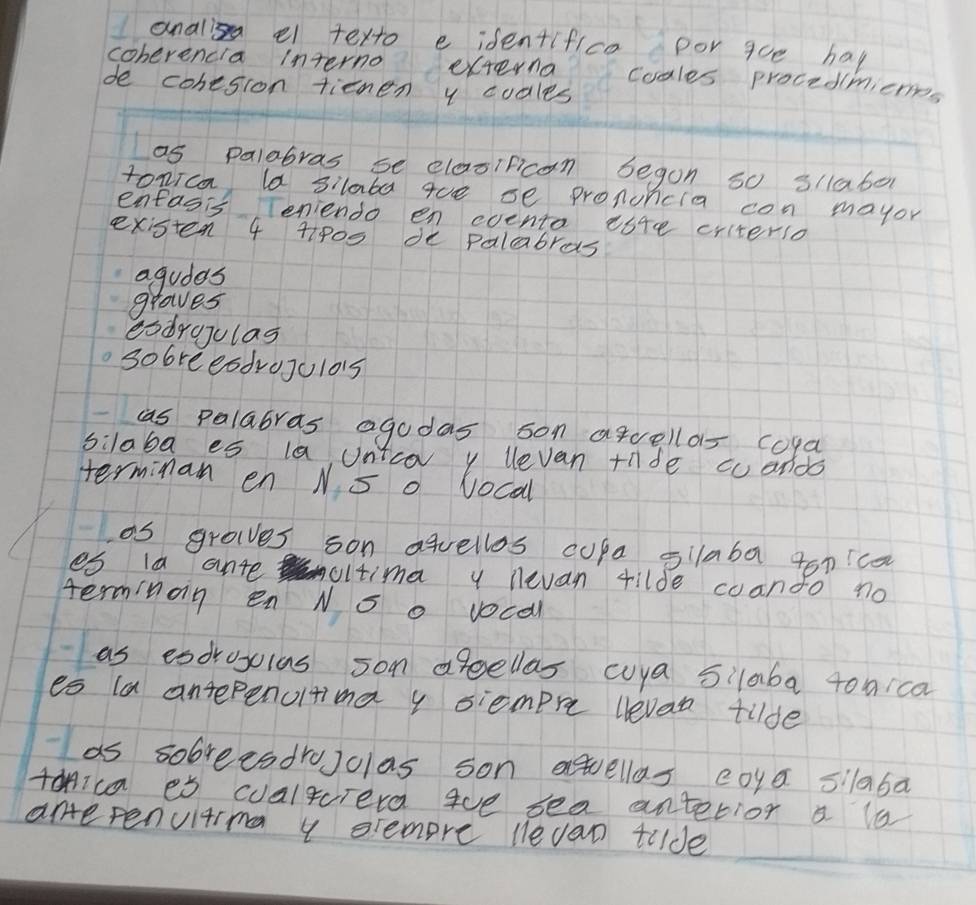 1 analiza el texto e identifico por que hay
coherencia interno externa cuales procedimientos
de cohesion tienen y cuales
Las palabras se clasifican segun so silaba
tonica la silaba que se pronuncia con mayor
enfasis Teniendo en cuenta este criterio
existen 4 tipos de palabras
• agudas
• graves
• esdrujulas
• sobreesdrujulas
- Las palabras agudas son aquellas cuya
silaba es la unica y llevan tilde cuando
terminan en N, S o Vocal
- Los graves son aquellos cuya silaba tonica
es la ante ultima y llevan tilde cuando no
terminain en N, S o vocal
- Las esdrujulas son aquellas cuya silaba tonica
es la antepenultima y siempre llevan tilde
- Las sobreesdrujulas son aquellas coya silaba
tonica es cualquiera que sea anterior a la
antepenultima y siempre llevan tilde